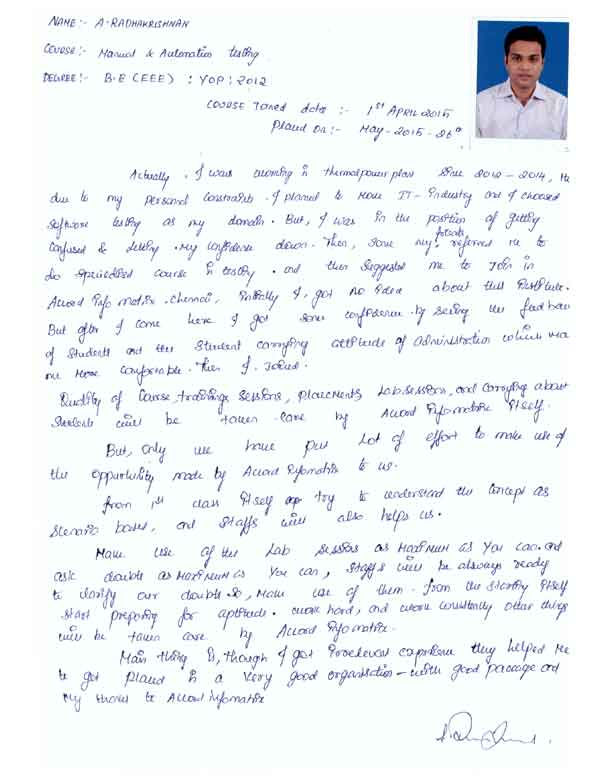 NAME:- A-RADHAKRISHNAN
COURSE:- Manual & Automation testing
DEGREE:- B.E (EEE) : YOP: 2012
COURSE Joined date :- 1ST APRIL 2015
Placed on:- May-2015-26th
Actually, I was working in thermal power plant Since 2012-2014,
due to my personal Constraints. I planed to Move IT-Industry and I choosed
Software testing as my domain. But, I was in the position of getting
Confused & letting My Confidence down. Then, Some my friends referred me to
do Specialised course in testing. and then Suggested me to Join in
Accord Info matrix. Chennai, Initially I, got No Idea about this Institute.
But after I come here I got some confidence by seeing the feed back
of Students and the Student carrying attitude of Administration which was
me More Comfortable. Then I Joined.
Quality of Course, trainings Sessions, placements, Lab Session, and Carrying about
Students will be taken care by Accord Infomatrix Itself.
But, only we have put Lot of effort to make use of
the Opportunity made by Accord Infomatrix to us.
from 1st class Itself try to understand the Concept as
Scenario based, and Staffs will also helps us.
Make use of the Lab Sessions as Maximum as You can. and
ask doubts as Maximum as You can, Staffs will be always ready
to clarify our doubts. So, Make use of them. from the starting Itself
Start preparing for aptitude. work hard, and work consistently other things
will be taken care by Accord Infomatrix.
Main thing is, though I got Irrelevant experience they helped Me
to get placed in a Very good organisation - with good package and
My thanks to Accord Infomatrix